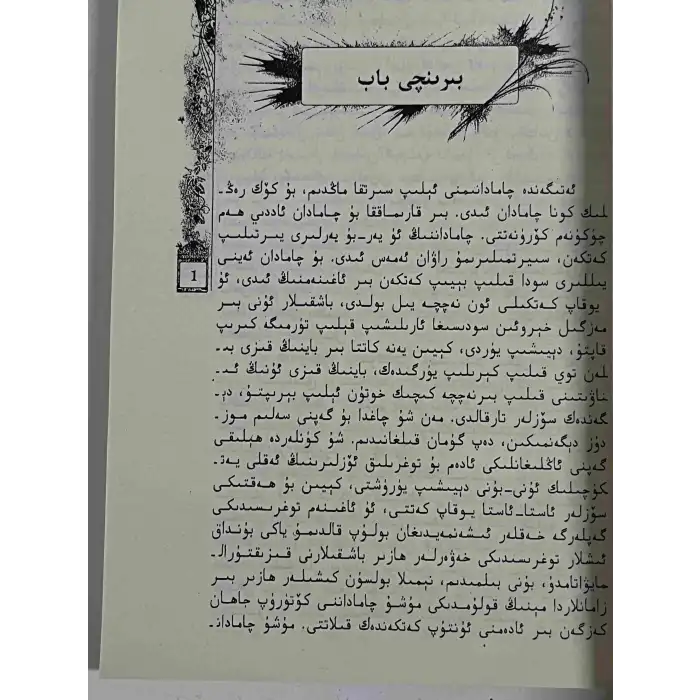 بىرىنچى باب
ئەتىگەندە چامادانىمنى ئېلىپ سىرتقا ماڭدىم، بۇ كۆك رەڭـ
لىك كونا چامادان ئىدى. بىر قارىماققا بۇ چامادان ئاددىي ھەم
چۈكۈنەم كۆرۈنەتتى. چاماداننىڭ ئۇ يەر-بۇ يەرلىرى يىرتىلىپ
كەتكەن، سىيرتمىلىرىمۇ راۋان ئەمەس ئىدى. بۇ چامادان ئەينى
يىللىرى سودا قىلىپ بېيىپ كەتكەن بىر ئاغىنەمنىڭ ئىدى، ئۇ
يوقاپ كەتكىلى ئون نەچچە يىل بولدى، باشقىلار ئۇنى بىر
مەزگىل خېروئىن سودىسىغا ئارىلىشىپ قېلىپ تۈرمىگە كىرىپ
قاپتۇ، دېيىشىپ يۈردى، كېيىن يەنە كاتتا بىر باينىڭ قىزى بىـ
لەن توي قىلىپ كېرىلىپ يۈرگىدەك، باينىڭ قىزى ئۇنىڭ ئىـ
ناۋىتىنى قىلىپ بىرنەچچە كىچىك خوتۇن ئېلىپ بېرىپتۇ، دېـ
گەندەك سۆزلەر تارقالدى. مەن شۇ چاغدا بۇ گەپنى سەلىم موزـ
دۇز دېگەنمىكىن، دەپ گۇمان قىلغانىدىم. شۇ كۈنلەردە ھېلىقى
گەپنى ئاڭلىغانلىكى ئادەم بۇ توغرىلىق ئۆزلىرىنىڭ ئەقلى يەتـ
كۈچىلىك ئۇنى-بۇنى دېيىشىپ يۈرۈشتى، كېيىن بۇ ھەقتىكى
سۆزلەر ئاستا-ئاستا يوقاپ كەتتى، ئۇ ئاغىنەم توغرىسىدىكى
گەپلەرگە خەقلەر ئىشەنمەيدىغان بولۇپ قالدىمۇ ياكى بۇنداق
ئىشلار توغرىسىدىكى خەۋەرلەر ھازىر باشقىلارنى قىزىقتۇرالـ
مايۋاتامدۇ، بۇنى بىلمىدىم، نېمىلا بولسۇن كىشىلەر ھازىر بىر
زامانلاردا مېنىڭ قولۇمدىكى مۇشۇ چاماداننى كۆتۈرۈپ جاھان
كەزگەن بىر ئادەمنى ئۇنتۇپ كەتكەندەك قىلاتتى. مۇشۇ چامادانـ
1